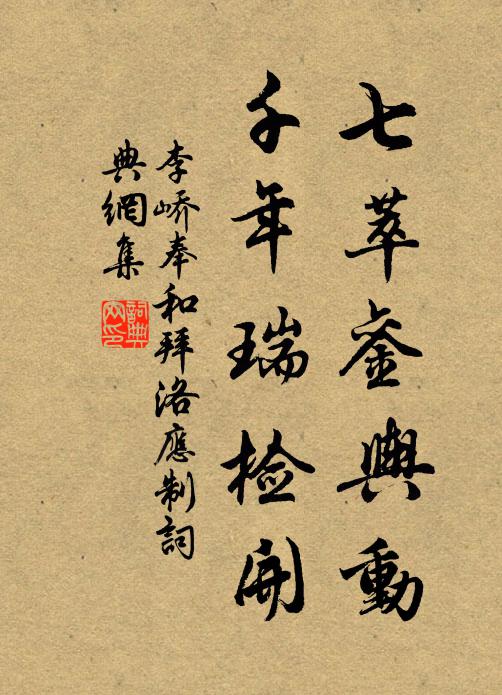 七萃銮輿動
千年瑞检開
李嶠奉和拜洛應制詞
典網集
詞典
网印